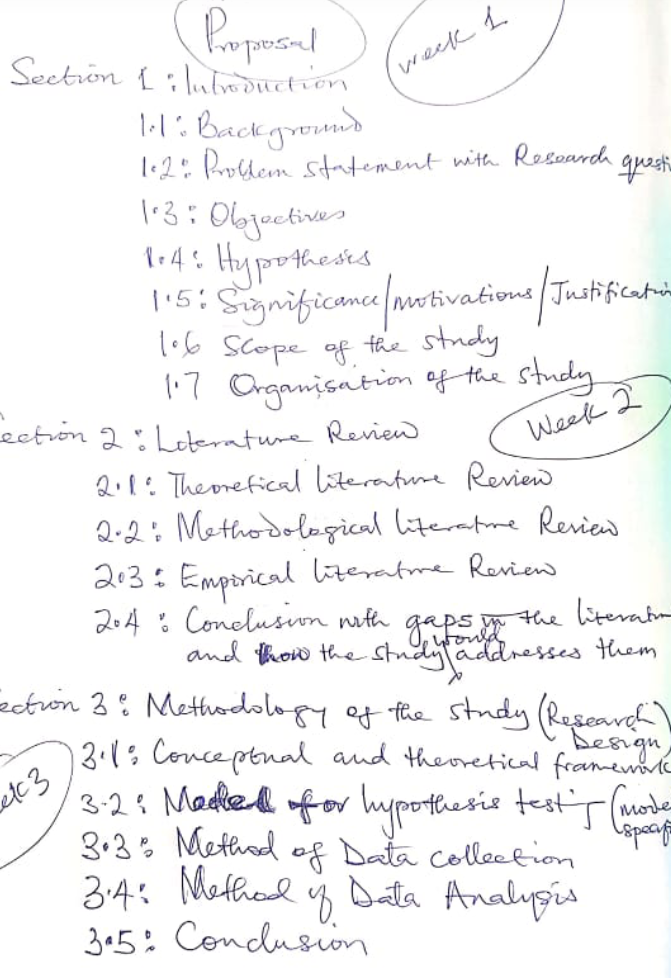 Proposal
week 1
Section 1: Introduction
1.1: Background
1.2: Problem statement with Research questi
1.3: Objectives
1.4: Hypotheses
1.5: Significance/motivations/Justificatio
1.6 Scope of the study
1.7 Organisation of the study
Week 2
ection 2: Literature Review
2.1: Theoretical literature Review
2.2: Methodological literature Review
2.3: Empirical literature Review
2.4: Conclusion with gaps in the literatur
would
and how the study addresses them
ection 3: Methodology of the study (Research
Design)
3.1: Conceptual and theoretical framework
ek 3
3.2: Model for hypothesis test'g (mode
specif
3.3: Method of Data collection
3.4: Method of Data Analysis
3.5: Conclusion